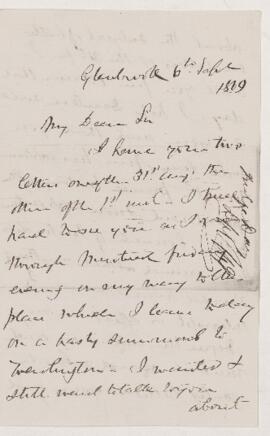 6th Sept
1879
My Dear Sir
I have your two
letters one of the 31st Aug. the
other of the 1st inst. I tried
hard to see you as I
through Montreal Friday
evening on my way to the
place which I leave today
on a hasty summons to
Washington. I wanted &
still want to talk to you
about